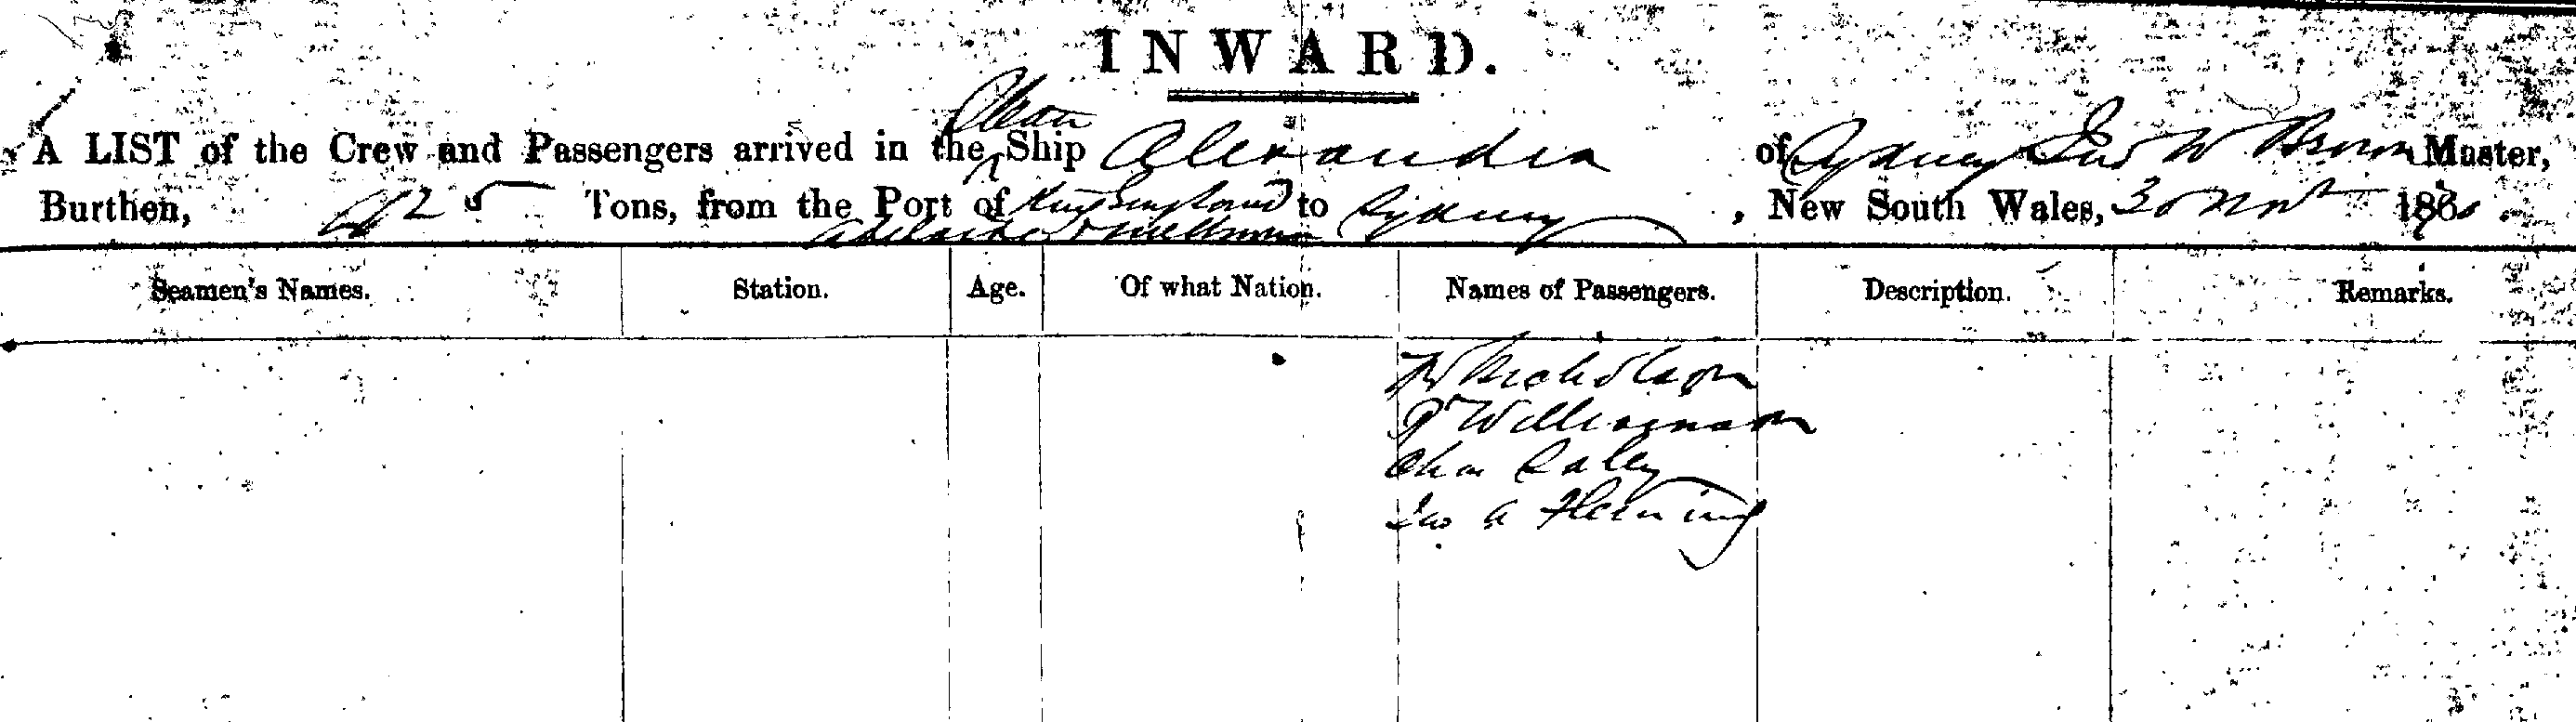 INWARD.
Steam
A LIST of the Crew and Passengers arrived in the Ship Alexandra of Sydney Jno W Brown Master,
Burthen, 425 Tons, from the Port of to Sydney, New South Wales, 30 Novr 1870.
Adelaide & Melbourne
Seamen's Names. Station. Age. Of what Nation. Names of Passengers. Description. Remarks.
W Nicholson
Williamson
Chas Raley
Jno A Fleming